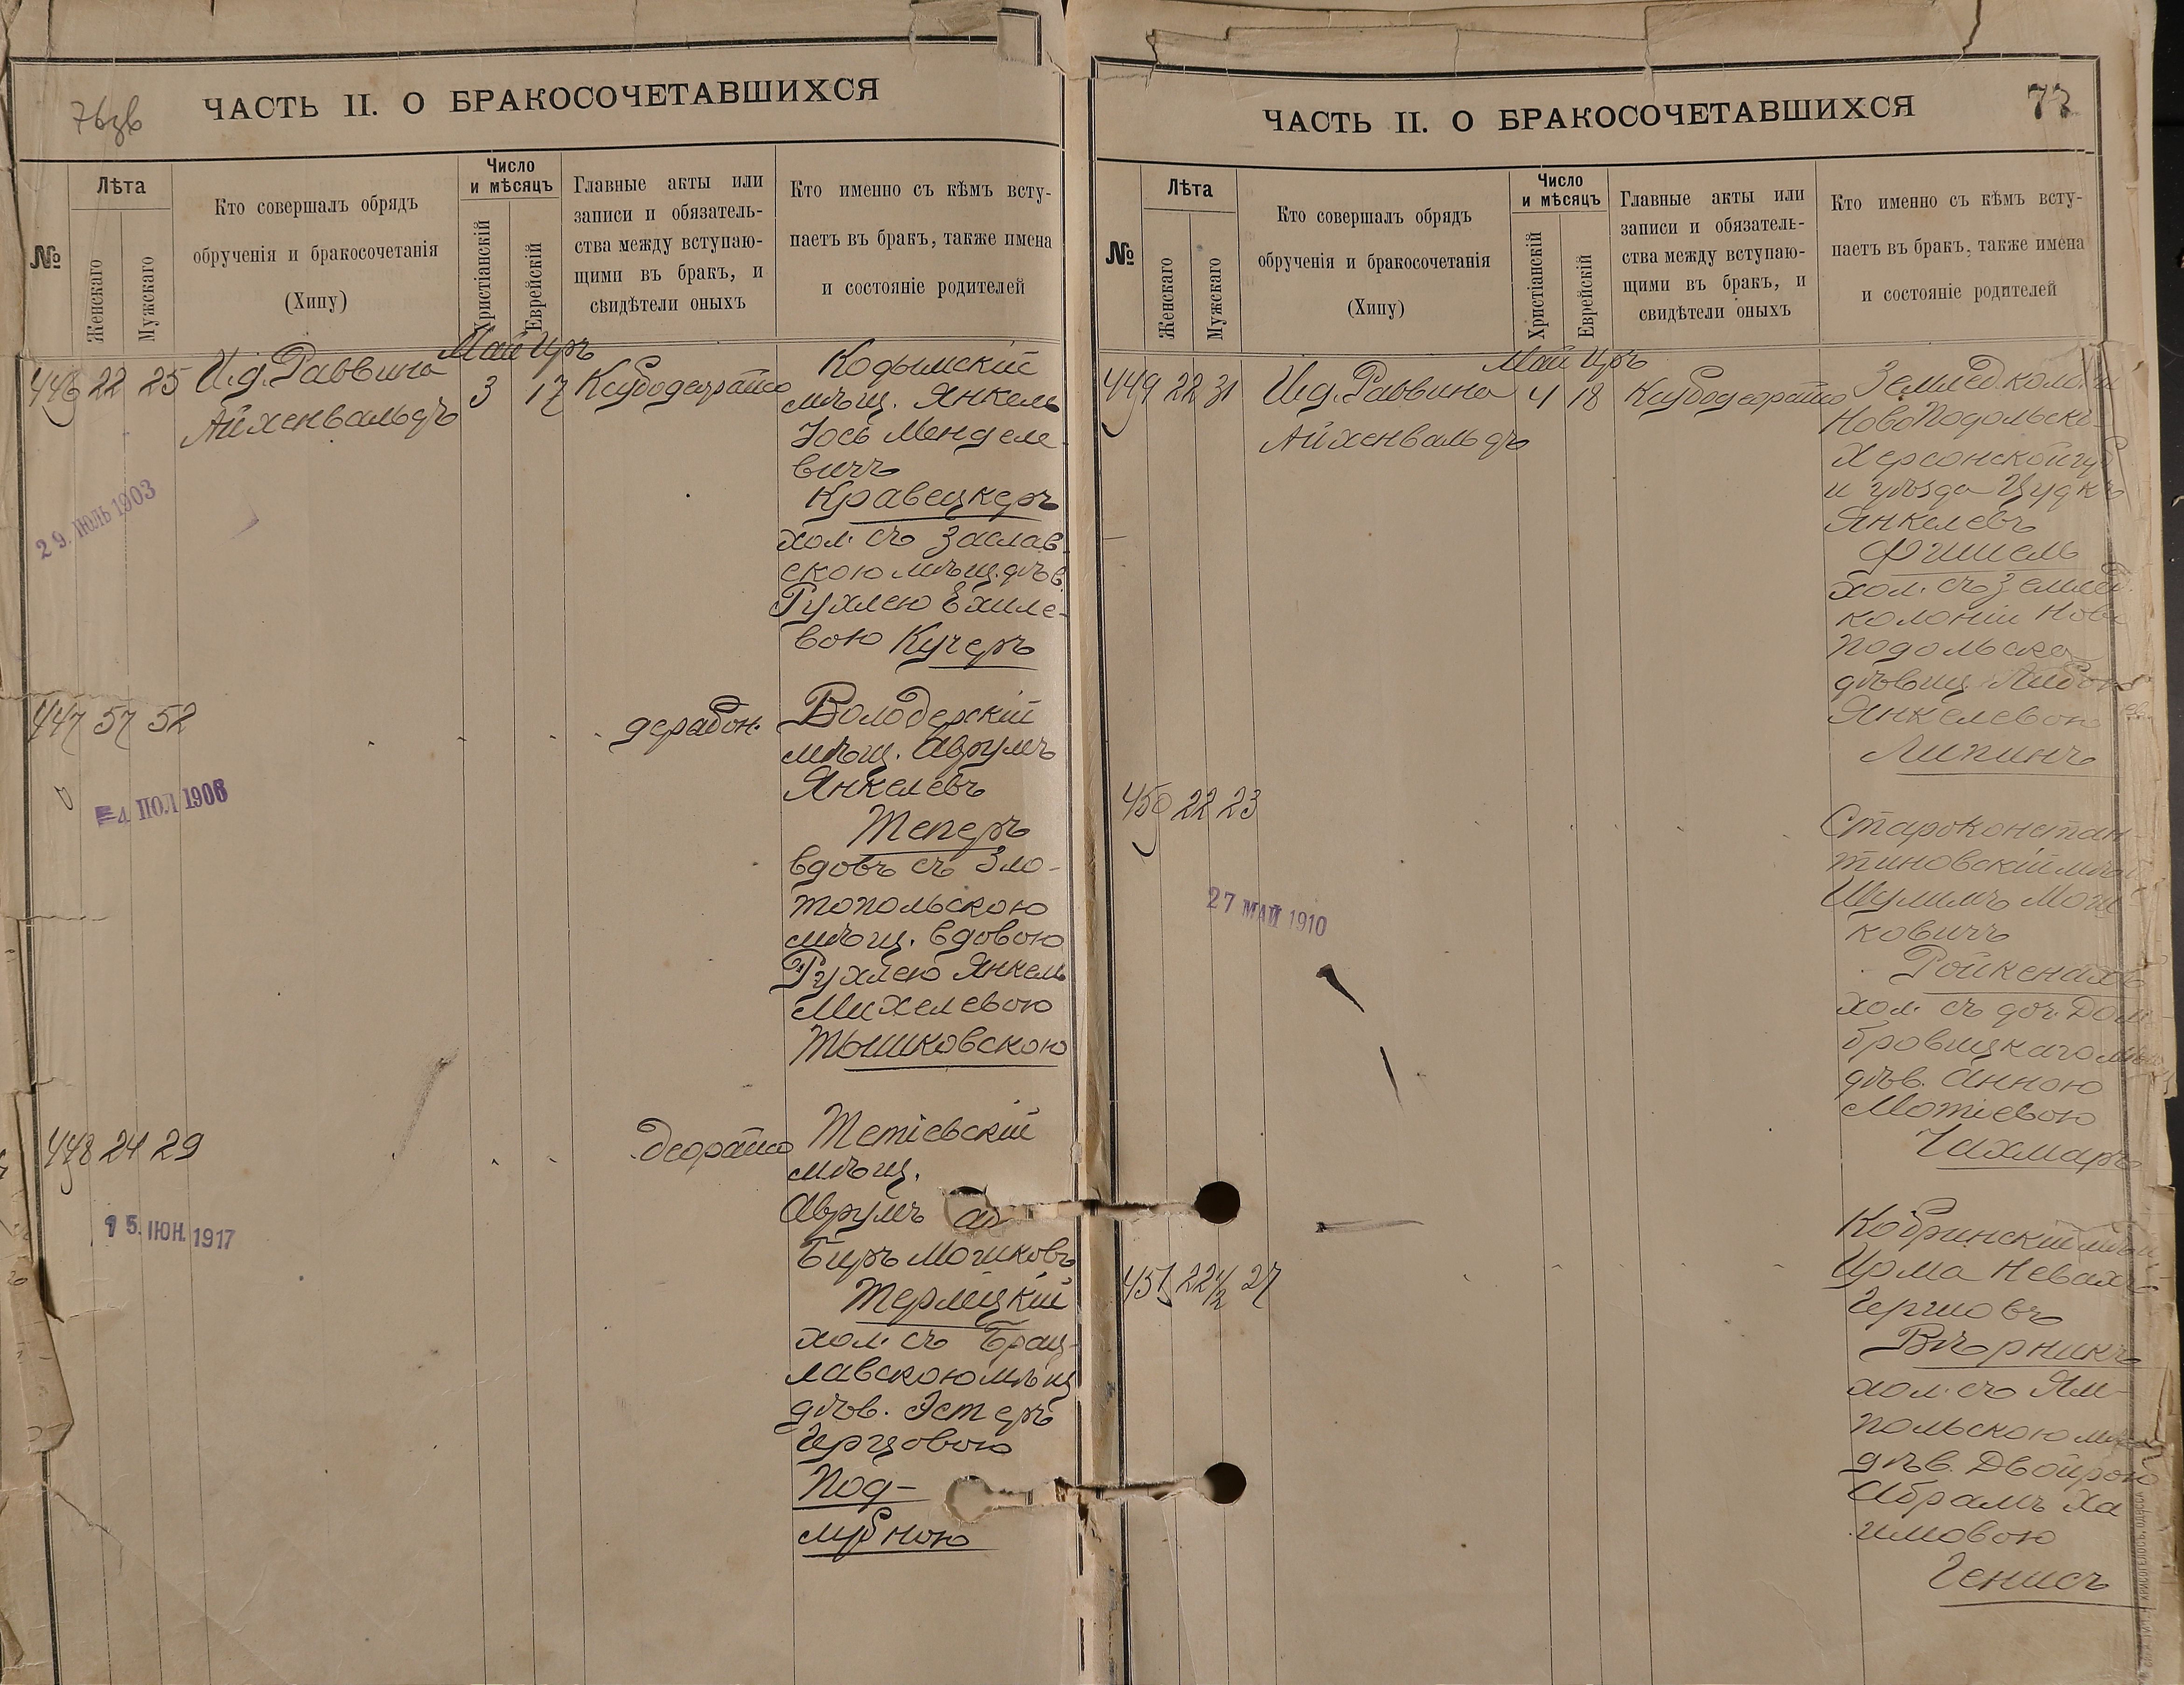 76зв
ЧАСТЬ II. О БРАКОСОЧЕТАВШИХСЯ
№
Лѣта
Женскаго
Мужскаго
Кто совершалъ обрядъ
обрученія и бракосочетанія
(Хипу)
Число
и мѣсяцъ
Христіанскій
Еврейскій
Главные акты или
записи и обязатель-
ства между вступаю-
щими въ бракъ, и
свидѣтели оныхъ
Кто именно съ кѣмъ всту-
паетъ въ бракъ, также имена
и состояніе родителей
Май Иръ
446 22 25 И.д. Раввина
Айхенвальдъ
3 17
Кодымскій
мѣщ. Янкель
Іось Менделе-
вичъ
Кравецкеръ
хол. съ Заслав-
скою мѣщ. дѣв.
Рухлею Ехиле-
вою Кучеръ
29. ІЮЛЬ 1903
447 57 52
дерабон.
Володерскій
мѣщ. Аврумъ
Янкелевъ
Теперъ
вдовъ съ Зло-
топольскою
мѣщ. вдовою
Рухлею Янкель
Михелевою
Тышковскою
4 ПОЛ 1906
448 24 29
Деорайсо
Тетіевскій
мѣщ.
Аврумъ
Беръ Мошковъ
Терлецкій
хол. съ Брац-
лавскою мѣщ
дѣв. Эстеръ
Герцовою
Под-
лубною
15. ІЮН. 1917
77
ЧАСТЬ II. О БРАКОСОЧЕТАВШИХСЯ
№
Лѣта
Женскаго
Мужскаго
Кто совершалъ обрядъ
обрученія и бракосочетанія
(Хипу)
Число
и мѣсяцъ
Христіанскій
Еврейскій
Главные акты или
записи и обязатель-
ства между вступаю-
щими въ бракъ, и
свидѣтели оныхъ
Кто именно съ кѣмъ всту-
паетъ въ бракъ, также имена
и состояніе родителей
Май Иръ
449 22 31 И.д. Раввина
Айхенвальдъ
4 18
Землед. колоніи
Новоподольскъ
Херсонской губ
и уѣзда
Янкелевъ
Фишель
хол. съ землед.
колоніи Ново
подольска
дѣвиц.
Янкелевою
Липинъ
450 22 23
Староконстан-
тиновскій мѣщ
Шулимъ Мош
ковичъ
Ройкенахъ
хол. съ доч. Дом-
бровицкаго мѣщ
дѣв. Анною
Мотіевою
Чахмаръ
27 МАЙ 1910
451 22 1/2 27
Кобринскій мѣщ
Ирма Невахъ
Гершовъ
Вѣрникъ
хол. съ Ям-
польскою мѣщ
дѣв. Двойрою
Абрамъ Ха
имовою
Генисъ